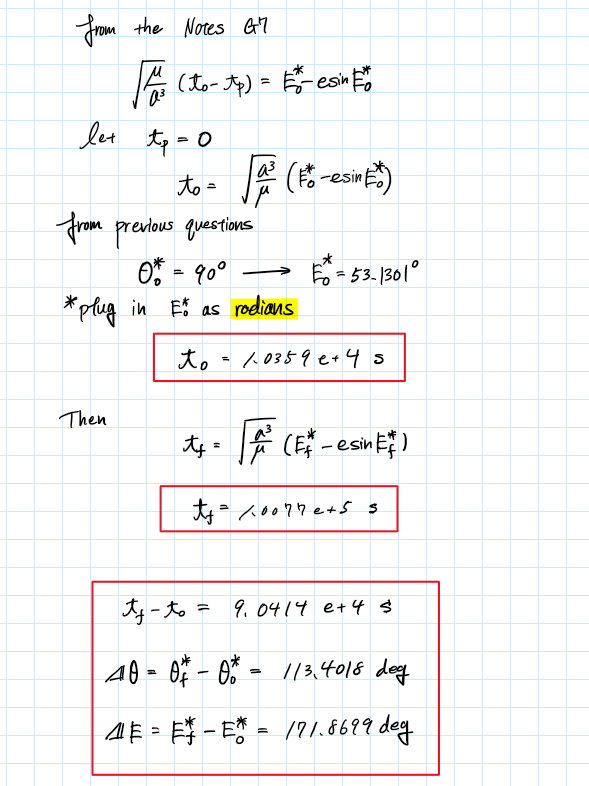 from the Notes G7
√(μ/a³) (t₀ - tₚ) = E₀* - esinE₀*
let tₚ = 0
t₀ = √(a³/μ) (E₀* - esinE₀*)
from previous questions
θ₀* = 90° ⟶ E₀* = 53.1301°
*plug in E₀* as radians
t₀ = 1.0359 e+4 s
Then
t_f = √(a³/μ) (E_f* - esinE_f*)
t_f = 1.0077 e+5 s
t_f - t₀ = 9.0414 e+4 s
Δθ = θ_f* - θ₀* = 113.4018 deg
ΔE = E_f* - E₀* = 171.8699 deg